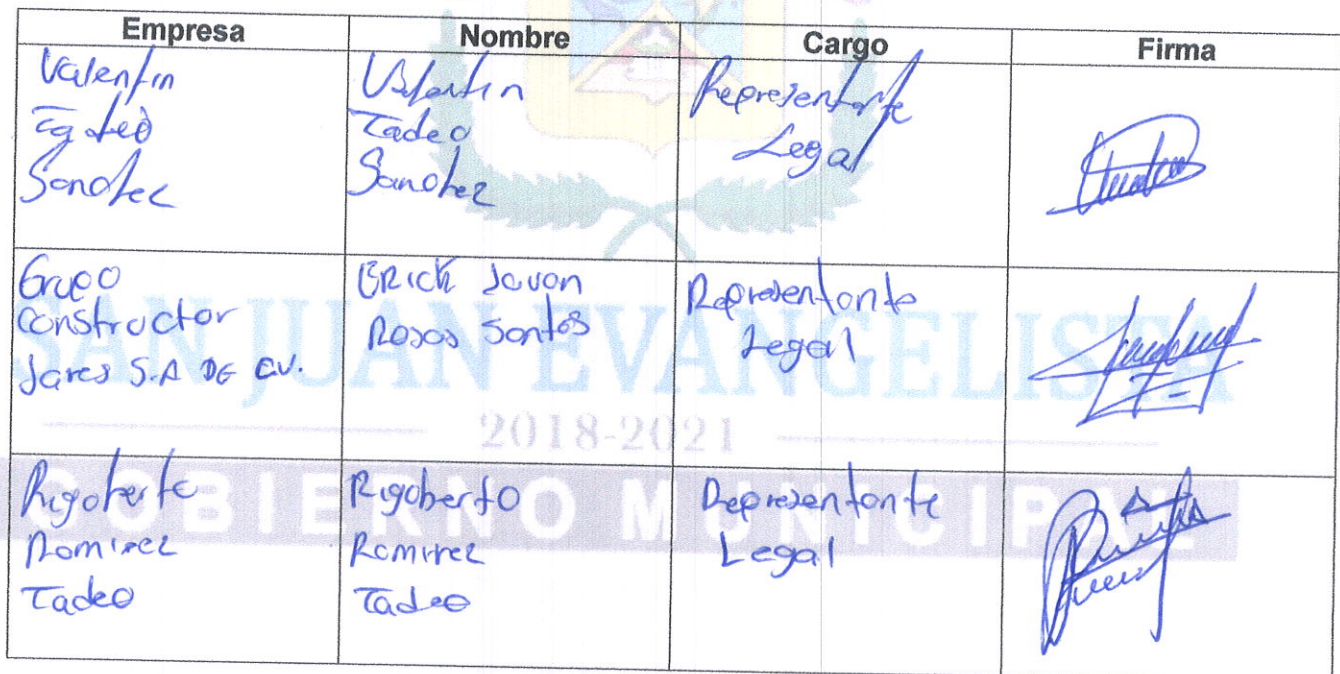 Empresa Nombre Cargo Firma
Valentin
Tadeo
Sanchez
Valentin
Tadeo
Sanchez
Representante
Legal
Grupo
constructor
Jares S.A DE C.V.
ERICK Jovan
Rosas Santos
Representante
Legal
Rigoberto
Ramirez
Tadeo
Rigoberto
Ramirez
Tadeo
Representante
Legal
SAN JUAN EVANGELISTA
2018-2021
GOBIERNO MUNICIPAL